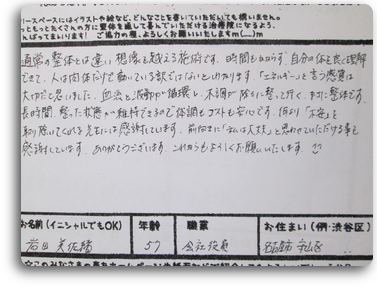 リースペースにはイラストや絵など、どんなことを書いていただいても構いません。
っともっとたくさんの方に整体を通して喜んでいただける治療院になるよう、
んばってまいります! ご協力の程、よろしくお願いいたします m(__)m
通常の整体とは違い想像を越える施術です。時間もかからず、自分の体を良く理解
できて、人は肉体だけで動いている訳ではないとわかります。「エネルギー」と言う感覚は
大切だと思いました。血流と波動が循環し、不調が除々に整って行く、まさに整体です。
長時間、整った状態が維持できるので体調もコストも安心です。何より「不安」を
取り除いてくれる先生には感謝しています。前向きに「私は大丈夫」と思わせていただける事を
感謝しています。ありがとうございます。これからもよろしくお願いいたします。
お名前(イニシャルでもOK) 年齢 職業 お住まい(例:渋谷区)
岩田 57 会社役員